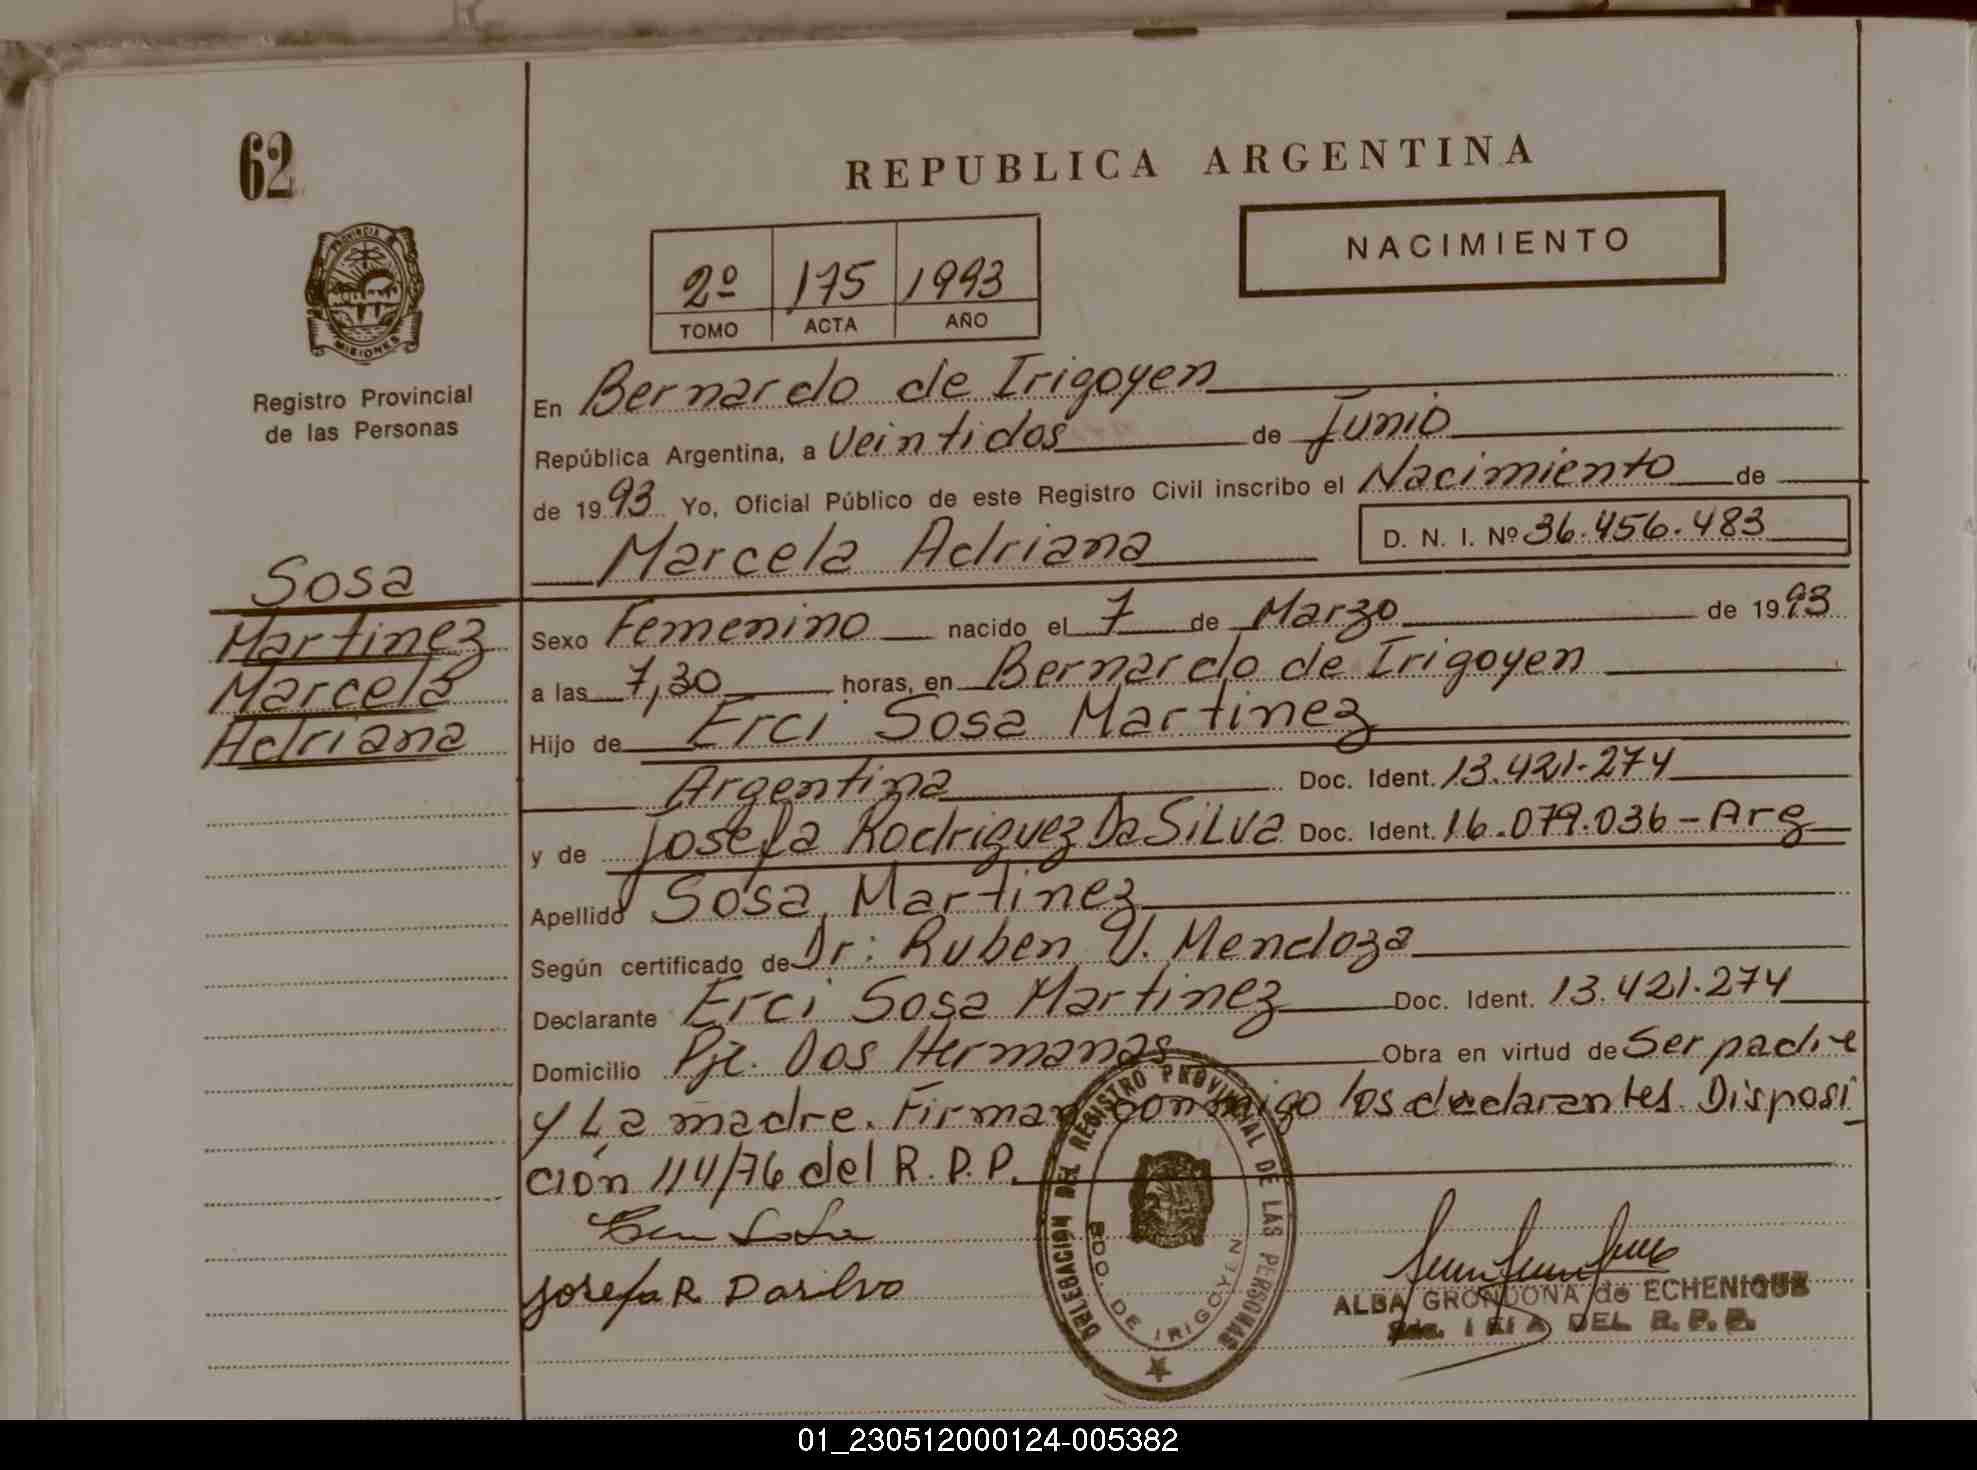 62
REPUBLICA ARGENTINA
NACIMIENTO
2º 175 1993
TOMO ACTA AÑO
PROVINCIA DE
MISIONES
Registro Provincial
de las Personas
En Bernardo de Irigoyen
República Argentina, a Veintidos de Junio
de 1993 Yo, Oficial Público de este Registro Civil inscribo el Nacimiento de
Marcela Adriana D. N. I. Nº 36.456.483
Sosa
Martinez
Marcela
Adriana
Sexo Femenino nacido el 7 de Marzo de 1993
a las 7,30 horas, en Bernardo de Irigoyen
Hijo de Erci Sosa Martinez
Argentina Doc. Ident. 13.421.274
y de Josefa Rodriguez Da Silva Doc. Ident. 16.079.036 - Arg
Apellido Sosa Martinez
Según certificado de Dr: Ruben V. Mendoza
Declarante Erci Sosa Martinez Doc. Ident. 13.421.274
Domicilio Pje. Dos Hermanas Obra en virtud de Ser padre
y La madre. Firman conmigo los declarantes. Disposi
ción 114/76 del R.P.P.
Josefa R. Dasilva
DELEGACION DEL REGISTRO PROVINCIAL DE LAS PERSONAS
BDO. DE IRIGOYEN
ALBA GRONDONA de ECHENIQUE
DEL R.P.P.
01_230512000124-005382